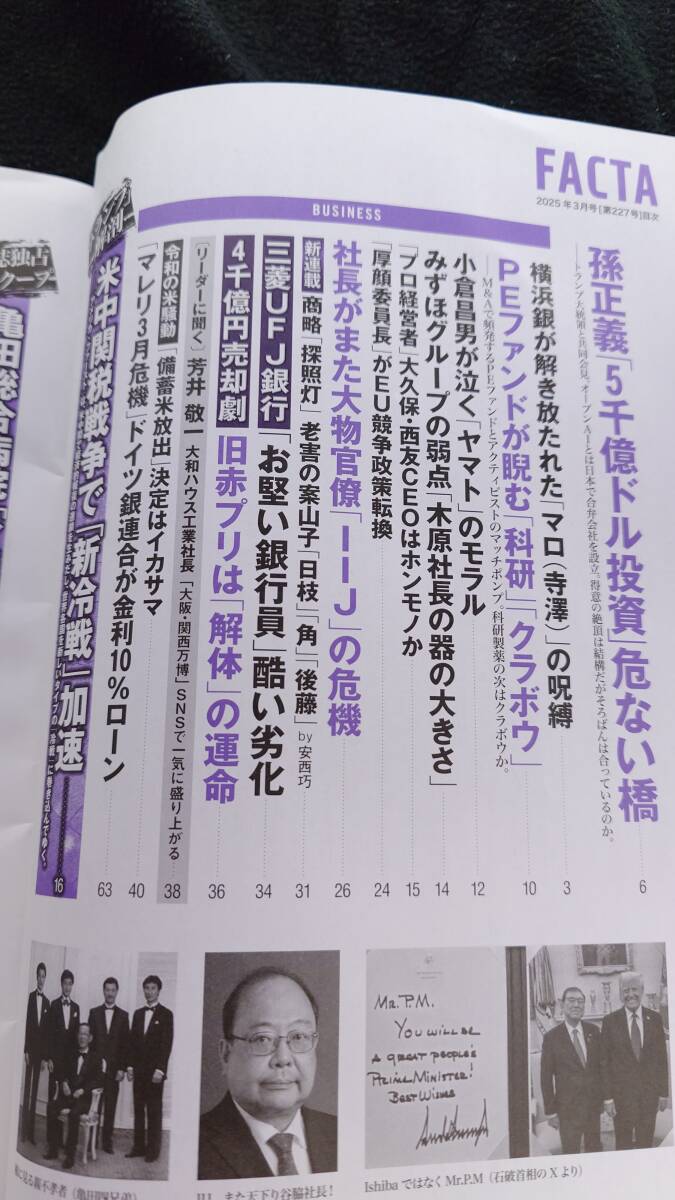 FACTA
2025年3月号[第227号]目次
BUSINESS
孫正義「5千億ドル投資」危ない橋
トランプ大統領と共同会見。オープンAIとは日本で合弁会社を設立。得意の絶頂は結構だがそろばんは合っているのか。
6
横浜銀が解き放たれた「マロ(寺澤)」の呪縛
3
PEファンドが睨む「科研」「クラボウ」
M&Aで頻発するPEファンドとアクティビストのマッチポンプ。科研製薬の次はクラボウか。
10
小倉昌男が泣く「ヤマト」のモラル
12
みずほグループの弱点「木原社長の器の大きさ」
14
「プロ経営者」大久保・西友CEOはホンモノか
15
「厚顔委員長」がEU競争政策転換
24
社長がまた大物官僚「IIJ」の危機
26
新連載 商略「探照灯」老害の案山子「日枝」「角」「後藤」by 安西巧
31
三菱UFJ銀行「お堅い銀行員」酷い劣化
34
4千億円売却劇 旧赤プリは「解体」の運命
36
[リーダーに聞く]芳井 敬一 大和ハウス工業社長「大阪・関西万博」SNSで一気に盛り上がる
38
令和の米騒動「備蓄米放出」決定はイカサマ
40
「マレリ3月危機」ドイツ銀連合が金利10%ローン
63
米中関税戦争で「新冷戦」加速
16
独占
クープ
亀田総合病院
Mr.P.M.
YOU WILL BE
A GREAT PEOPLE'S
PRIME MINISTER!
BEST WISHES
る親不孝者(亀田4兄弟)
また天下り谷脇社長!
IshibaではなくMr.P.M(石破首相のXより)